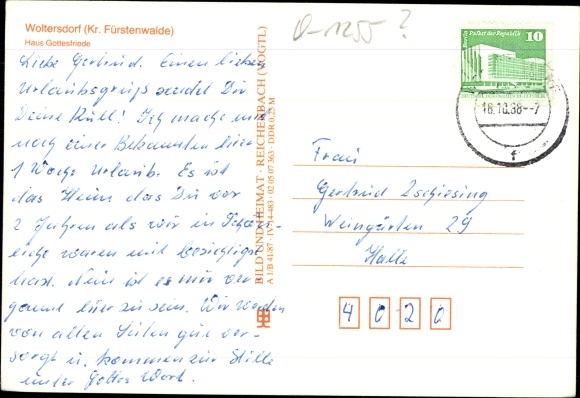 Woltersdorf (Kr. Fürstenwalde)
Haus Gottesfriede
Liebe Gertrud. Einen lieben
Urlaubsgruß sendet Dir
Deine Ruth! Ich mache mit
noch einer Bekannten hier
1 Woche Urlaub. Es ist
das Heim das Du vor
2 Jahren als wir in
waren mit besichtigt
hast. Nun ist es mir ver-
gönnt hier zu sein. Wir werden
von allen Seiten gut ver-
sorgt u. kommen zur Stille
unter Gottes Wort.
BILD UND HEIMAT · REICHENBACH (VOGTL)
A 1/B 41/87 · IV-14-483 · 02 05 07 363 · DDR 0,25 M
O-1255 ?
Berlin Palast der Republik 10
16.10.88--7
Frau
Gertrud Zschiesing
Weingärten 29
Halle
4 0 2 0